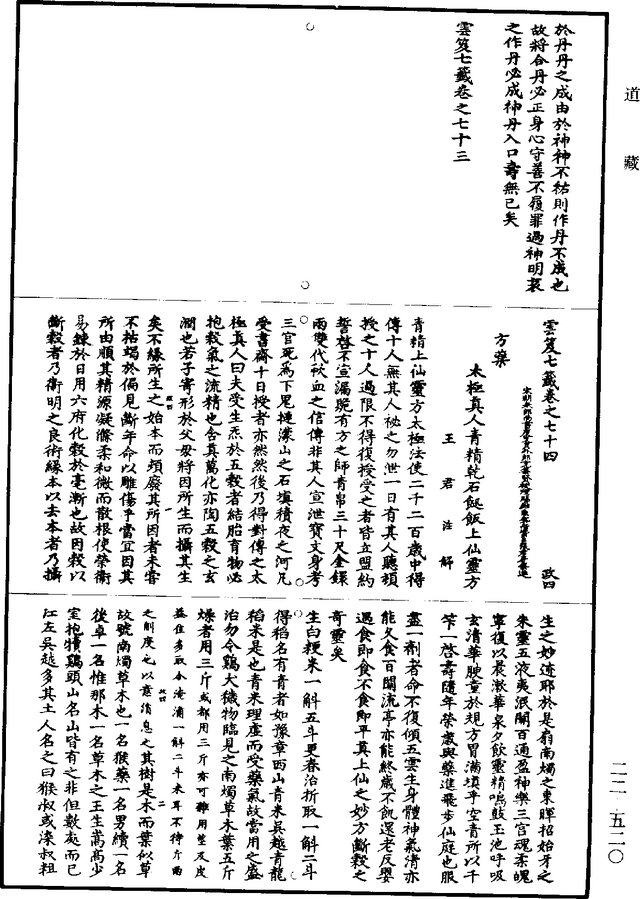 道藏
於丹丹之成由於神神不祐則作丹不成也
故將合丹必正身心守善不履罪過神明裒
之作丹必成神丹入口壽無已矣
雲笈七籤卷之七十三
雲笈七籤卷之七十四
政四
方藥
太極真人青精乾石䭀飯上仙靈方
王君注解
青精上仙靈方太極法使二千二百歲中得
傳十人無其人祕之勿世一日有其人聽頓
授之十人過限不得復授受之者皆立盟約
誓啓不宣漏脫有方之師青帛三十尺金鐶
兩雙代歃血之信傳非其人宣泄寶文身考
三官死為下鬼撻濛山之石填積夜之河凡
受書齋十日授者亦然然後乃得對傳之太
極真人曰夫受生炁於五穀者結胎育物必
抱穀氣之流精也含真萬化亦陶五穀之玄
潤也若子寄形於父母將因所生而攝其生
矣不緣所生之始本而頹廢其所因者未嘗
不枯竭於偏見斷年命以雕傷乎當宜因其
所由順其精源凝滌柔和微而散根使榮衛
易鍊於日用六府化穀於毫漸也故因穀以
斷穀者乃衛明之良術緣本以去本者乃攝
生之妙迹耶於是扇南燭之東暉招始牙之
朱靈五液夷泯關百通盈神樂三宮魂柔魄
寧復以晨漱華泉夕飲靈精鳴鼓玉池呼吸
玄清華腴童於規方胃滿填乎空青所以千
筭一啓壽隨年榮歲與藥進飛步仙庭也服
盡一劑者命不復傾五雲生身體神氣清亦
能久食百關流亭亦能終歲不飢還老反嬰
遇食即食不食即平真上仙之妙方斷穀之
奇靈矣
生白粳米一斛五斗更舂治折取一斛二斗
得稻名有青者如豫章西山青米吳越青龍
稻米是也青米理虛而受藥氣故當用之盛
治勿令雞犬穢物臨見之南燭草木葉五斤
燥者用三斤或都用三斤亦可雜用莖及皮
益佳多取令淹漬一斛二斗米耳不待斤兩
之制度之以意消息之其樹是木而葉似草
故號南燭草木也一名猴藥一名男續一名
後卓一名惟那木一名草木之王生嵩高少
室抱犢雞頭山名山皆有之非但數處而已
江左吳越多其土人名之曰猴叔或染叔粗
二二－五二〇